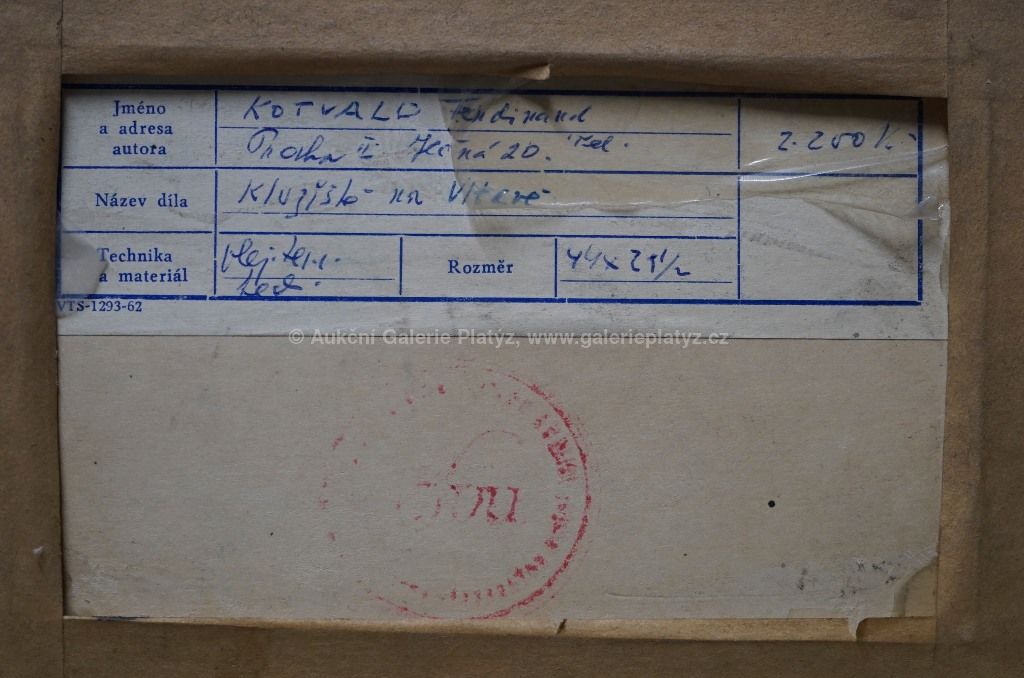 Jméno
a adresa
autora
KOTVALD Ferdinand
Praha II Ječná 20. Tel.
2.250 Kč
Název díla
Kluziště na Vltavě
Technika
a materiál
olej. tem.
Rozměr
44x
VTS-1293-62
© Aukční Galerie Platýz, www.galerieplatyz.cz